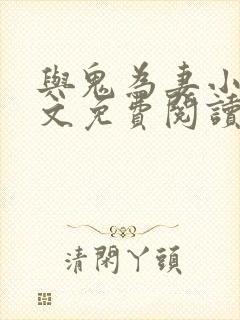 與鬼為妻小
文免費閱讀
清閑丫頭